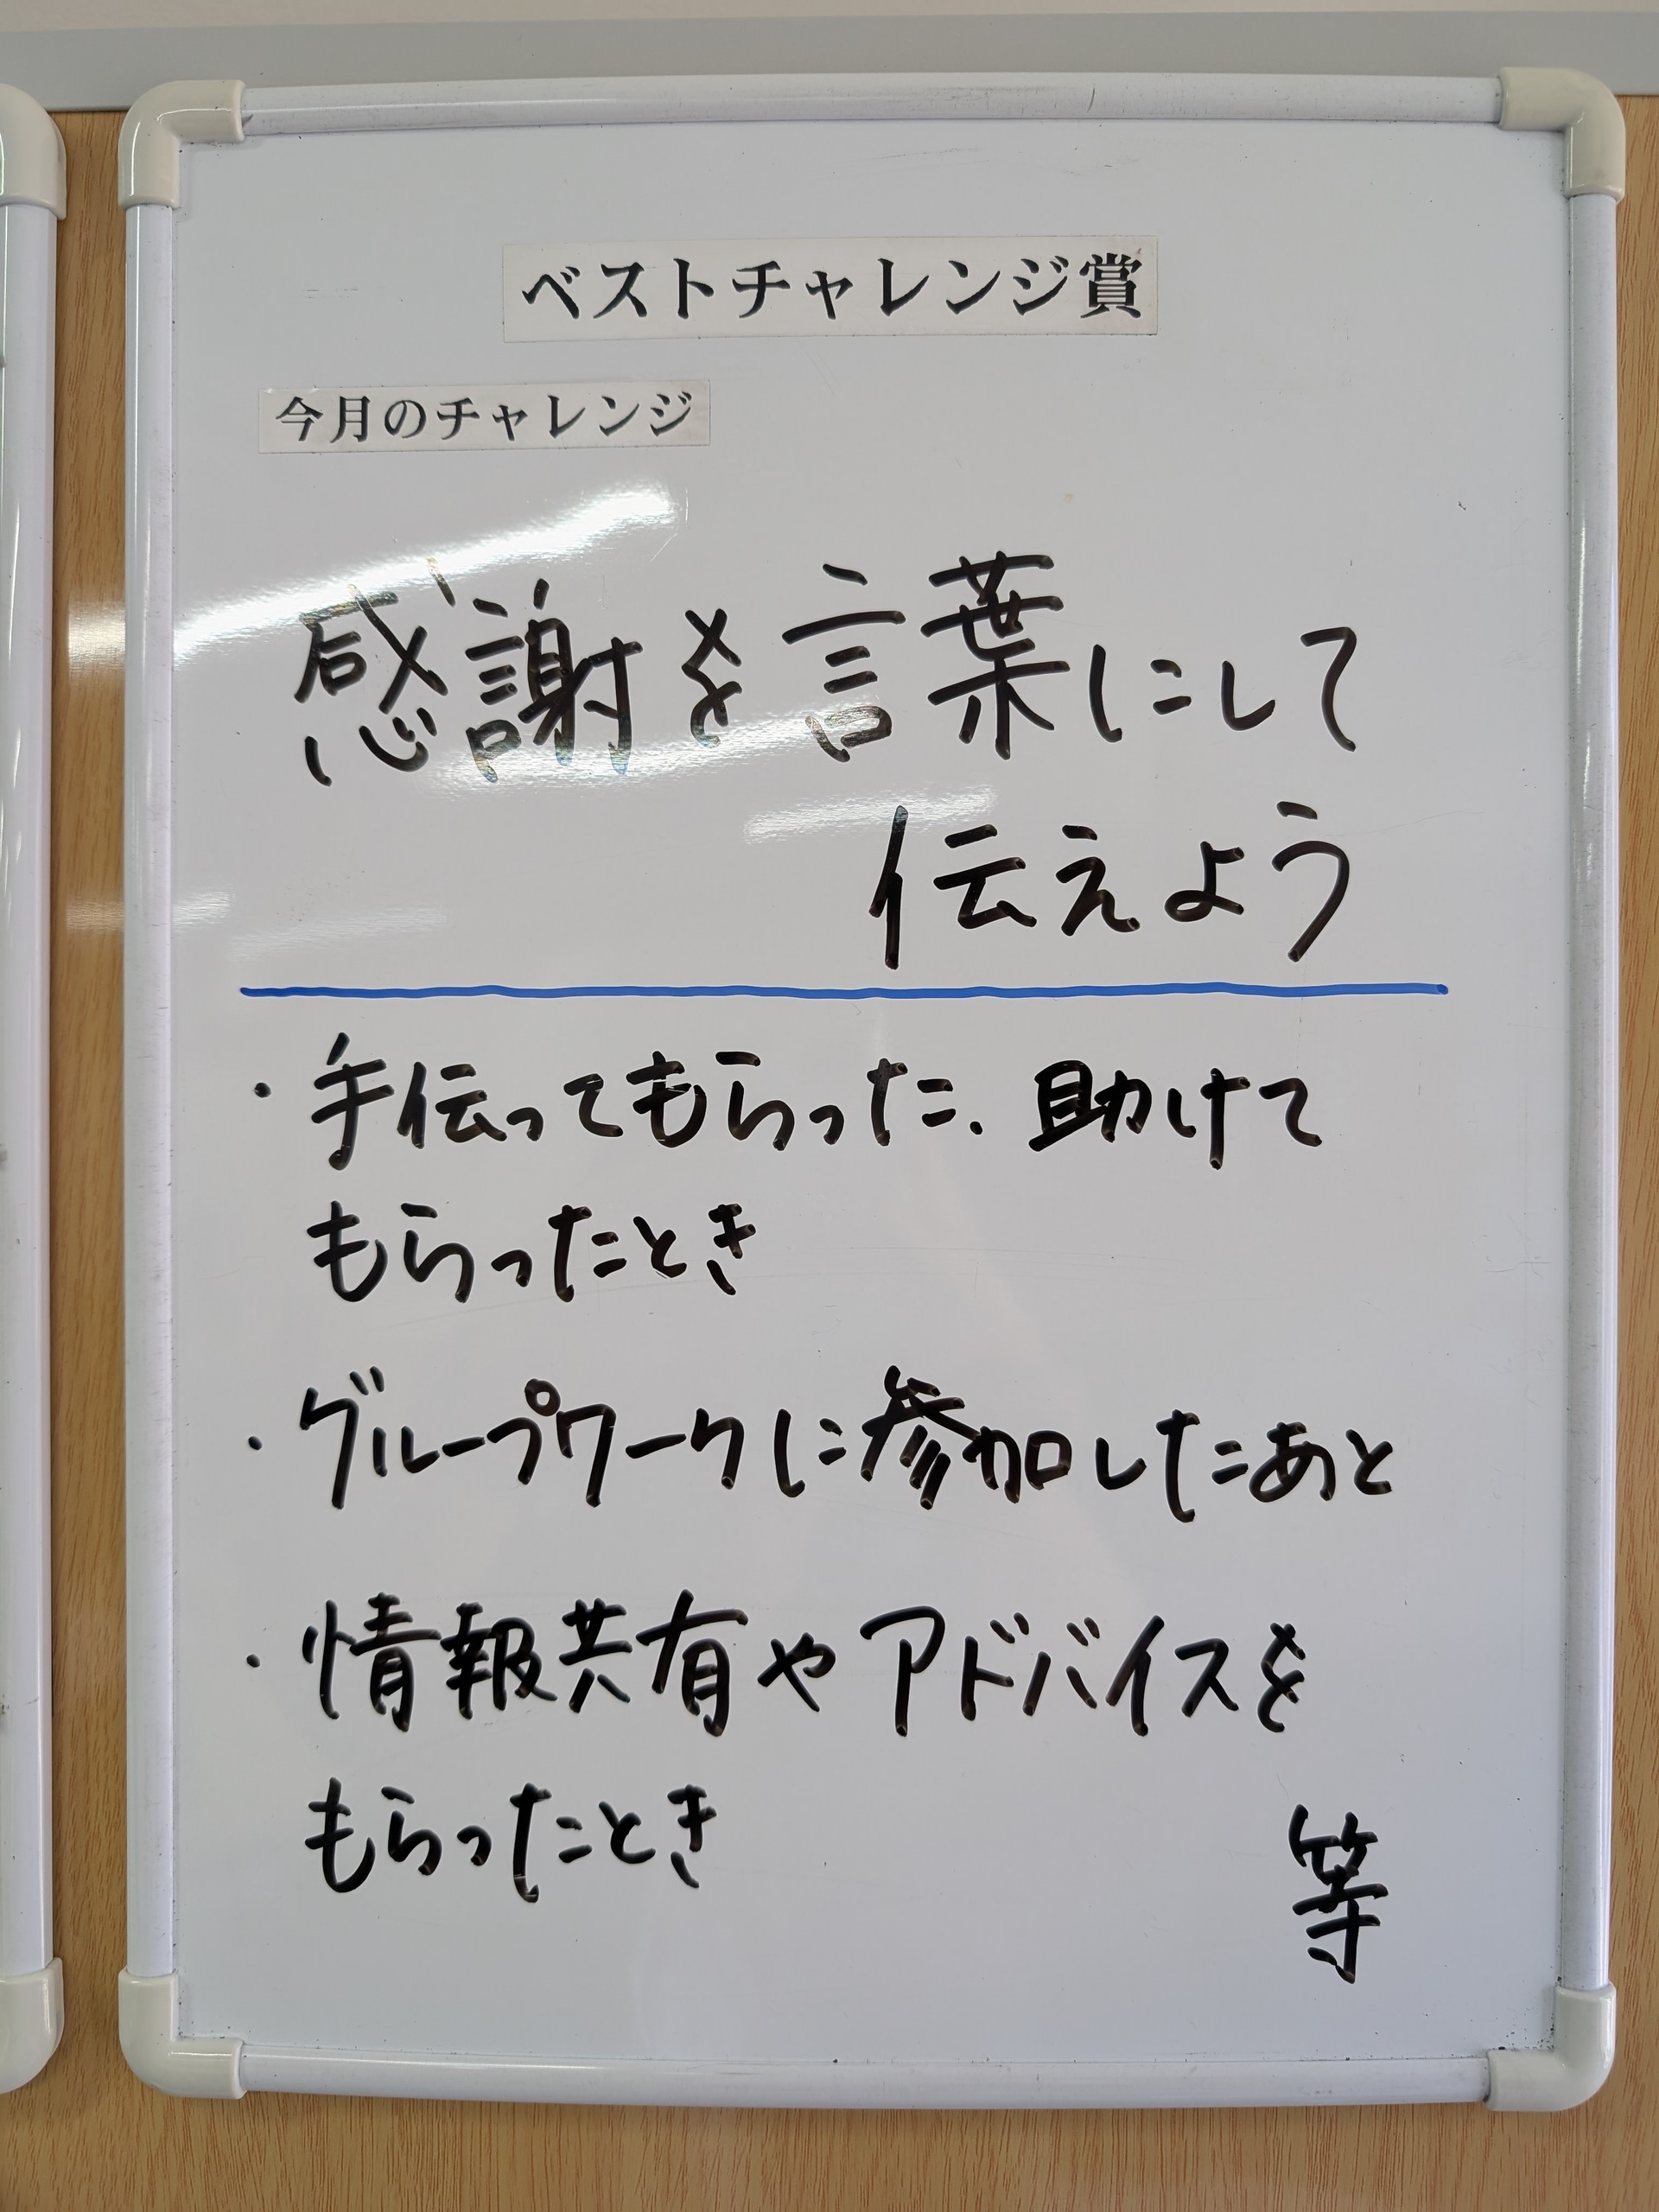 ベストチャレンジ賞
今月のチャレンジ
感謝を言葉にして
伝えよう
・手伝ってもらった.助けて
もらったとき
・グループワークに参加したあと
・情報共有やアドバイスを
もらったとき
等